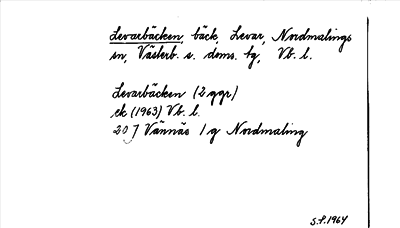 Levarbäcken, bäck, Levar, Nordmalings
sn, Västerb. s. doms. tg, Vb. l.
Levarbäcken (2 ggr)
ek (1963) Vb. l.
20 J Vännäs 1 g Nordmaling
S.P. 1964